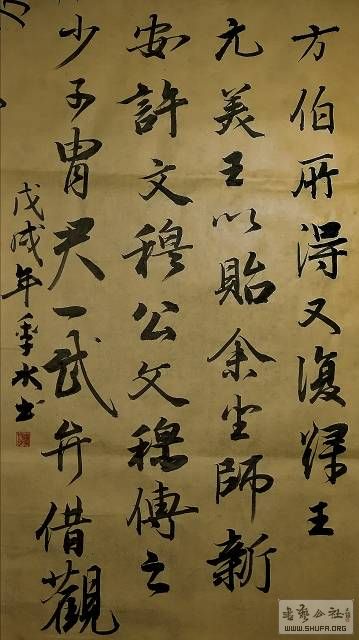 方伯所得又復歸王
元美王以貽余坐師新
安許文穆公文穆傳之
少子胄君一武弁借觀
戊戌年季水书
书艺公社
WWW.SHUFA.ORG